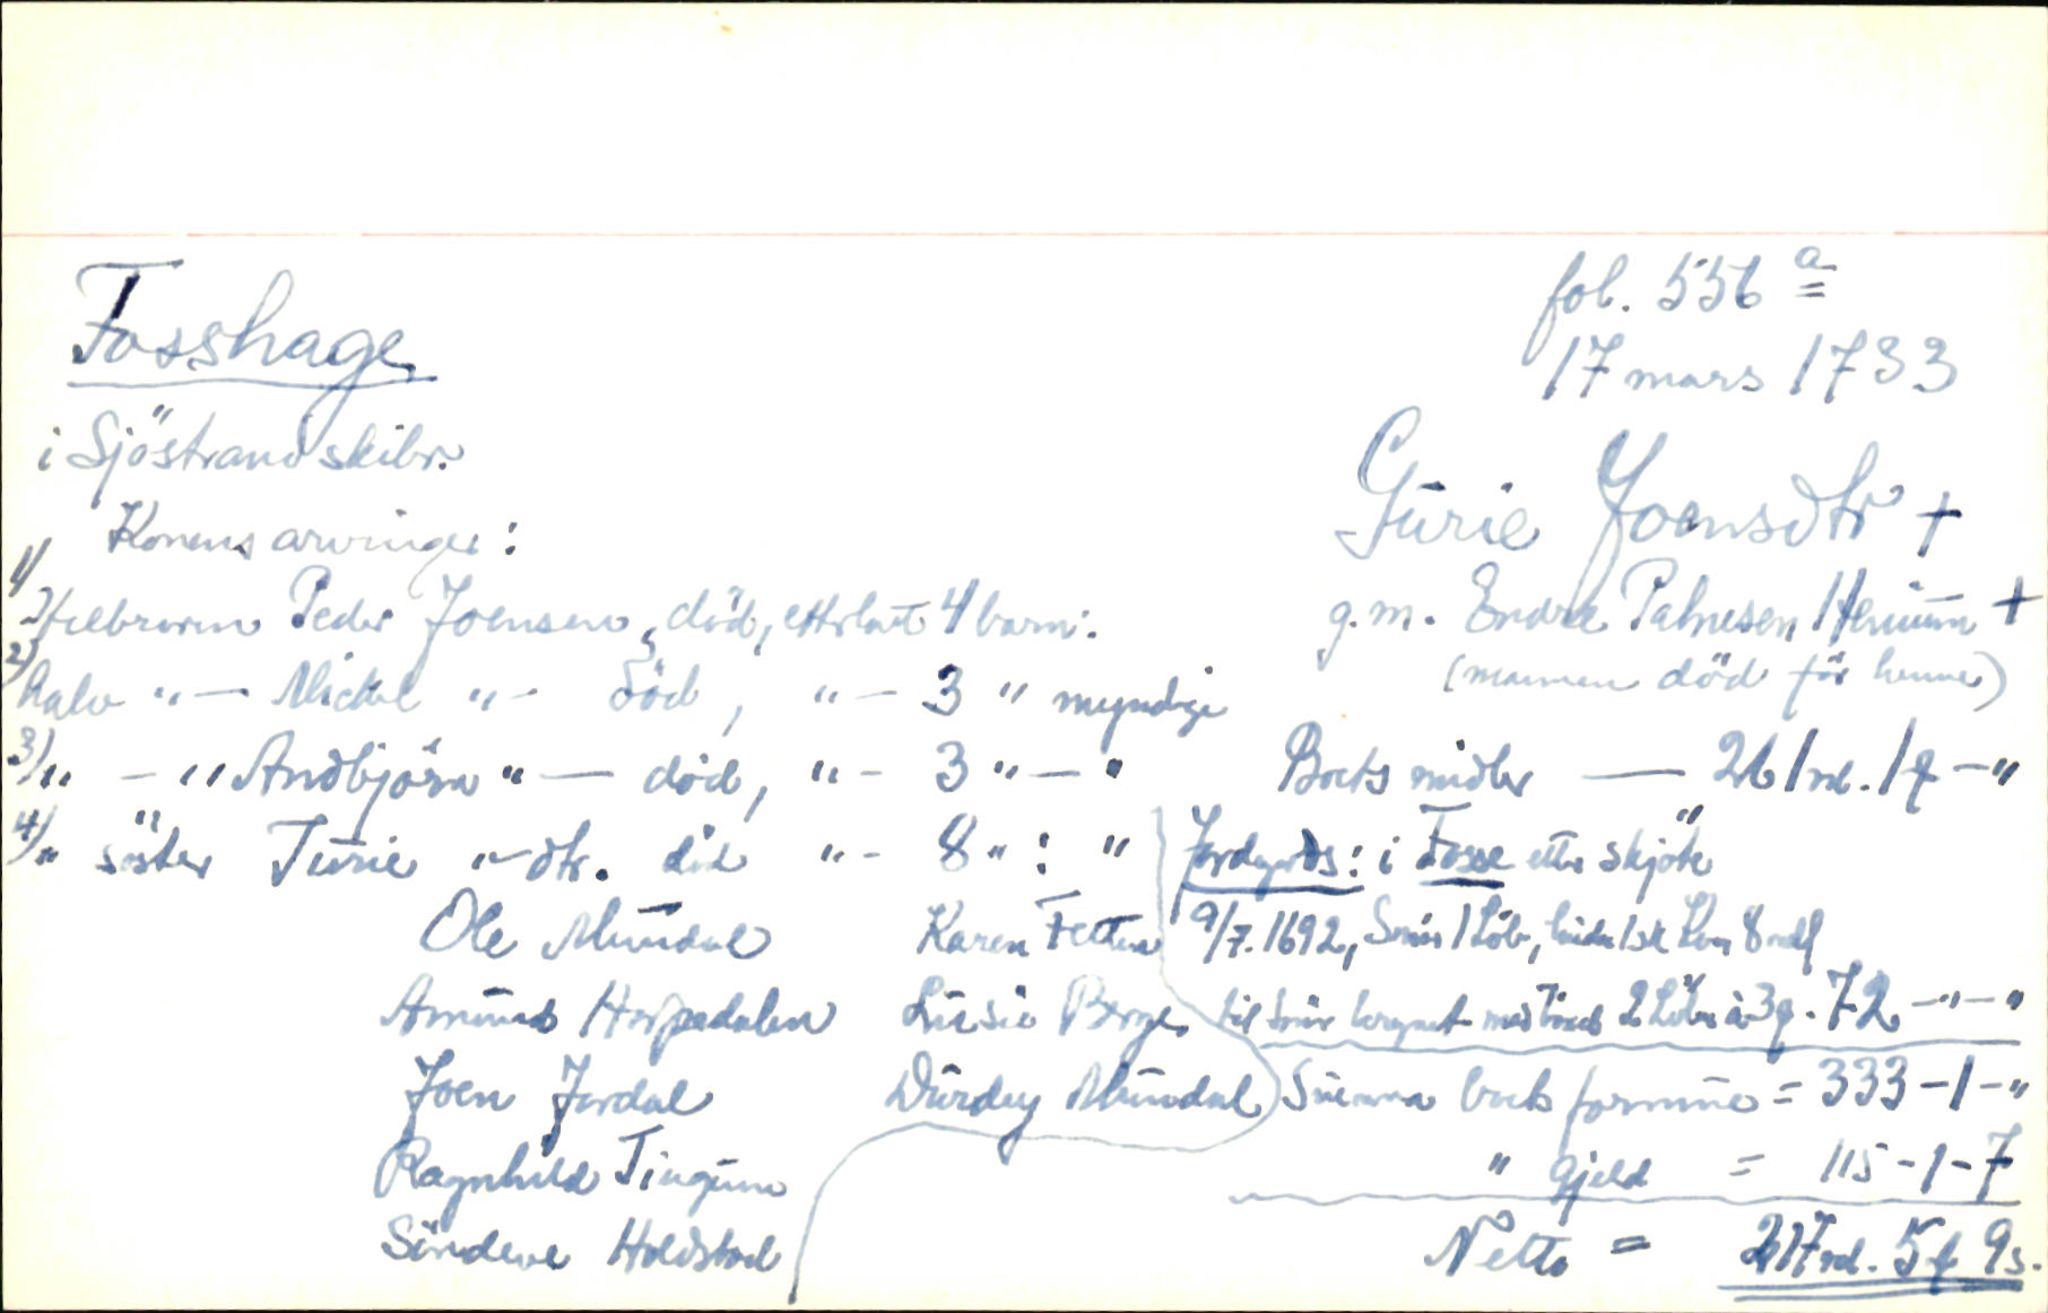 Fosshage
i Sjöstrand skibr.
Konens arvinger:
1/ Helbroren Peder Joensen, död, etterlat 4 barn:
2) halv "— Mickel "— död, "— 3 " myndige
3) " — " Andbjörn "— död, "— 3 "— "
4) " söster Turie "— dtr. död "— 8 " : "
Ole Mundal Karen Fetten
Amund Harpedalen Lusie Berge
Joen Jordal Durdey Mundal
Ragnhild Tingum
Sündeve Holdstad
fol. 556 a
17 mars 1733
Gurie Joensdtr +
g.m. Endre Palnesen Henium +
(mannen död för henne)
Boets midler — 261 rd. 1 q — "
Jordegods: i Fosse etter skjöte
9/7. 1692, Smör 1 Löb, huder 1 sk
til Smör beregnet med 2 Löber à 3 q. 72 — " — "
Summa boets formue = 333 — 1 — "
" Gjeld = 115 — 1 — 7
Netto = 217 rd. 5 q 9 s.